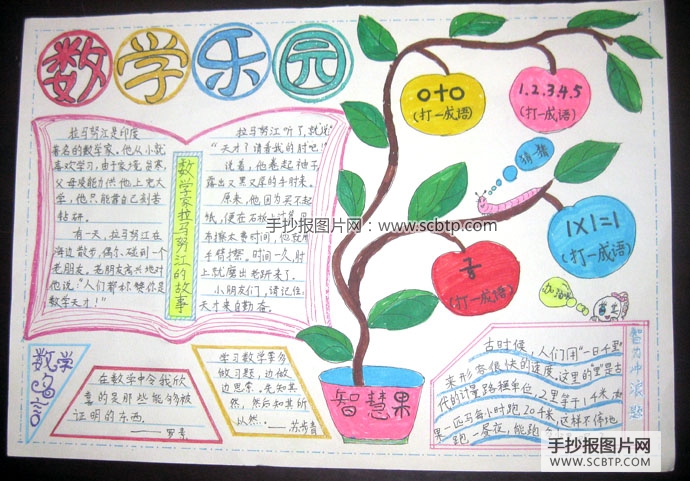 数学乐园
拉马努江是印度
著名的数学家。他从小就
喜欢学习,由于家境贫寒,
父母没能力供他上完大
学,他只能靠自己刻苦
钻研。
有一天,拉马努江在
海边散步,偶尔碰到一个
老朋友。老朋友高兴地对
他说:“人们都称赞你是
数学天才!”
数学家拉马努江的故事
拉马努江听了,就说
“天才?请看我的肘吧!”
说着,他卷起袖子
露出又黑又厚的手肘来。
原来,他因为买不起
纸,便在石板
手臂擦。时间一久,肘
上就磨出老趼来了。
小朋友们,请记住,
天才来自勤奋。
手抄报图片网:www.scbtp.com
0+0
(打一成语)
1.2.3.4.5
(打一成语)
猜猜
1×1=1
(打一成语)
(打一成语)
加油
智慧果
数学名言
在数学中令我欣
喜的是那些能够被
证明的东西。
——罗素
学习数学要多
做习题,边做
边思索。先知其
然,然后知其所
以然。
——苏步青
智力冲浪题
古时候,人们用“一日千里”
来形容很快的速度。这里的里是古
代的计量路程单位,2里等于1千米。如
果一匹马每小时跑20千米,这样不停地
跑一昼夜,能跑
手抄报图片网
WWW.SCBTP.COM